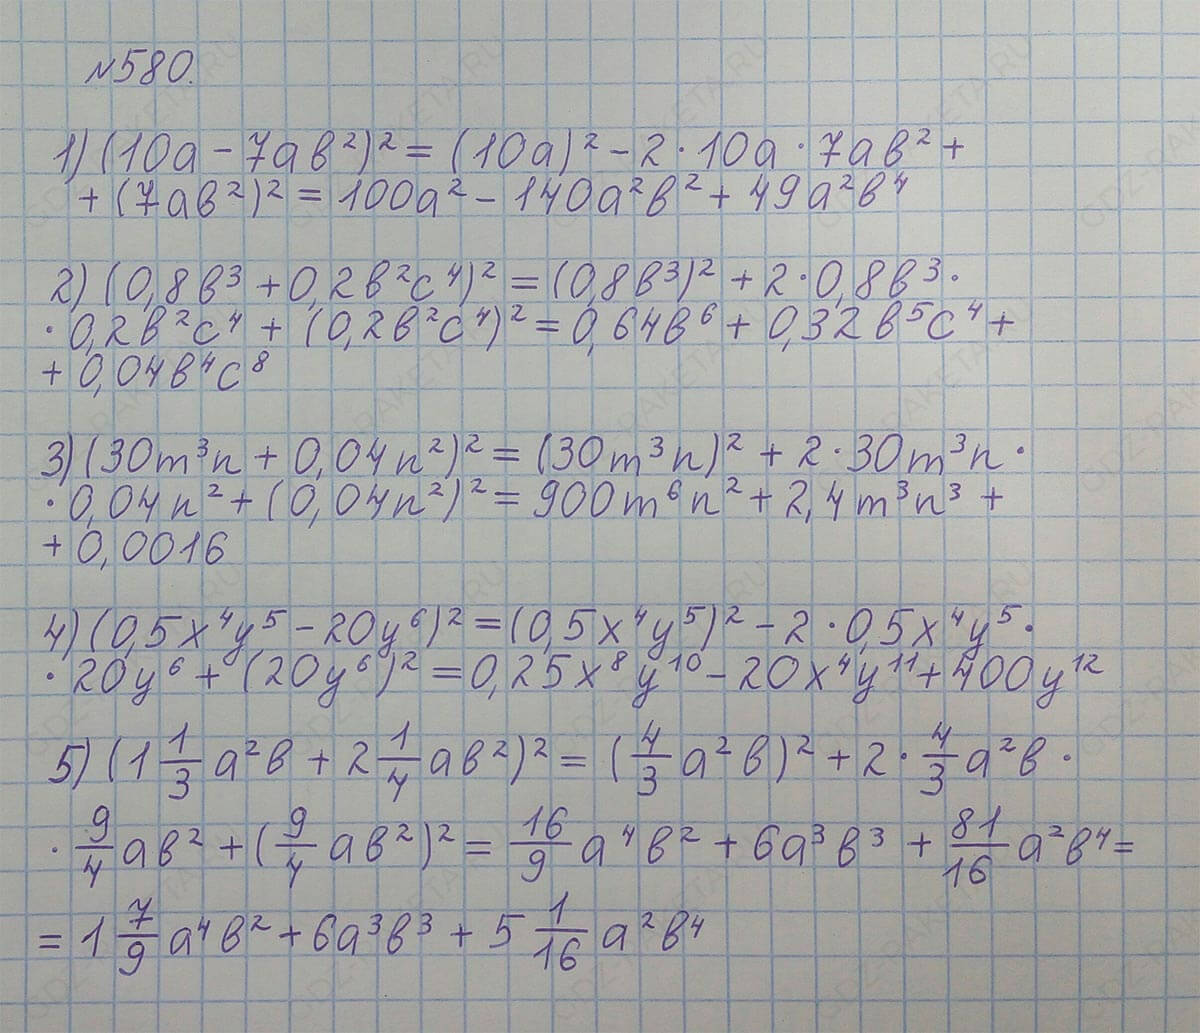 №580.
1) (10a - 7ab²)² = (10a)² - 2·10a·7ab² +
+ (7ab²)² = 100a² - 140a²b² + 49a²b⁴
2) (0,8b³ + 0,2b²c⁴)² = (0,8b³)² + 2·0,8b³·
·0,2b²c⁴ + (0,2b²c⁴)² = 0,64b⁶ + 0,32b⁵c⁴ +
+ 0,04b⁴c⁸
3) (30m³n + 0,04n²)² = (30m³n)² + 2·30m³n·
·0,04n² + (0,04n²)² = 900m⁶n² + 2,4m³n³ +
+ 0,0016
4) (0,5x⁴y⁵ - 20y⁶)² = (0,5x⁴y⁵)² - 2·0,5x⁴y⁵·
·20y⁶ + (20y⁶)² = 0,25x⁸y¹⁰ - 20x⁴y¹¹ + 400y¹²
5) (1 1/3 a²b + 2 1/4 ab²)² = (4/3 a²b)² + 2·4/3 a²b·
·9/4 ab² + (9/4 ab²)² = 16/9 a⁴b² + 6a³b³ + 81/16 a²b⁴ =
= 1 7/9 a⁴b² + 6a³b³ + 5 1/16 a²b⁴